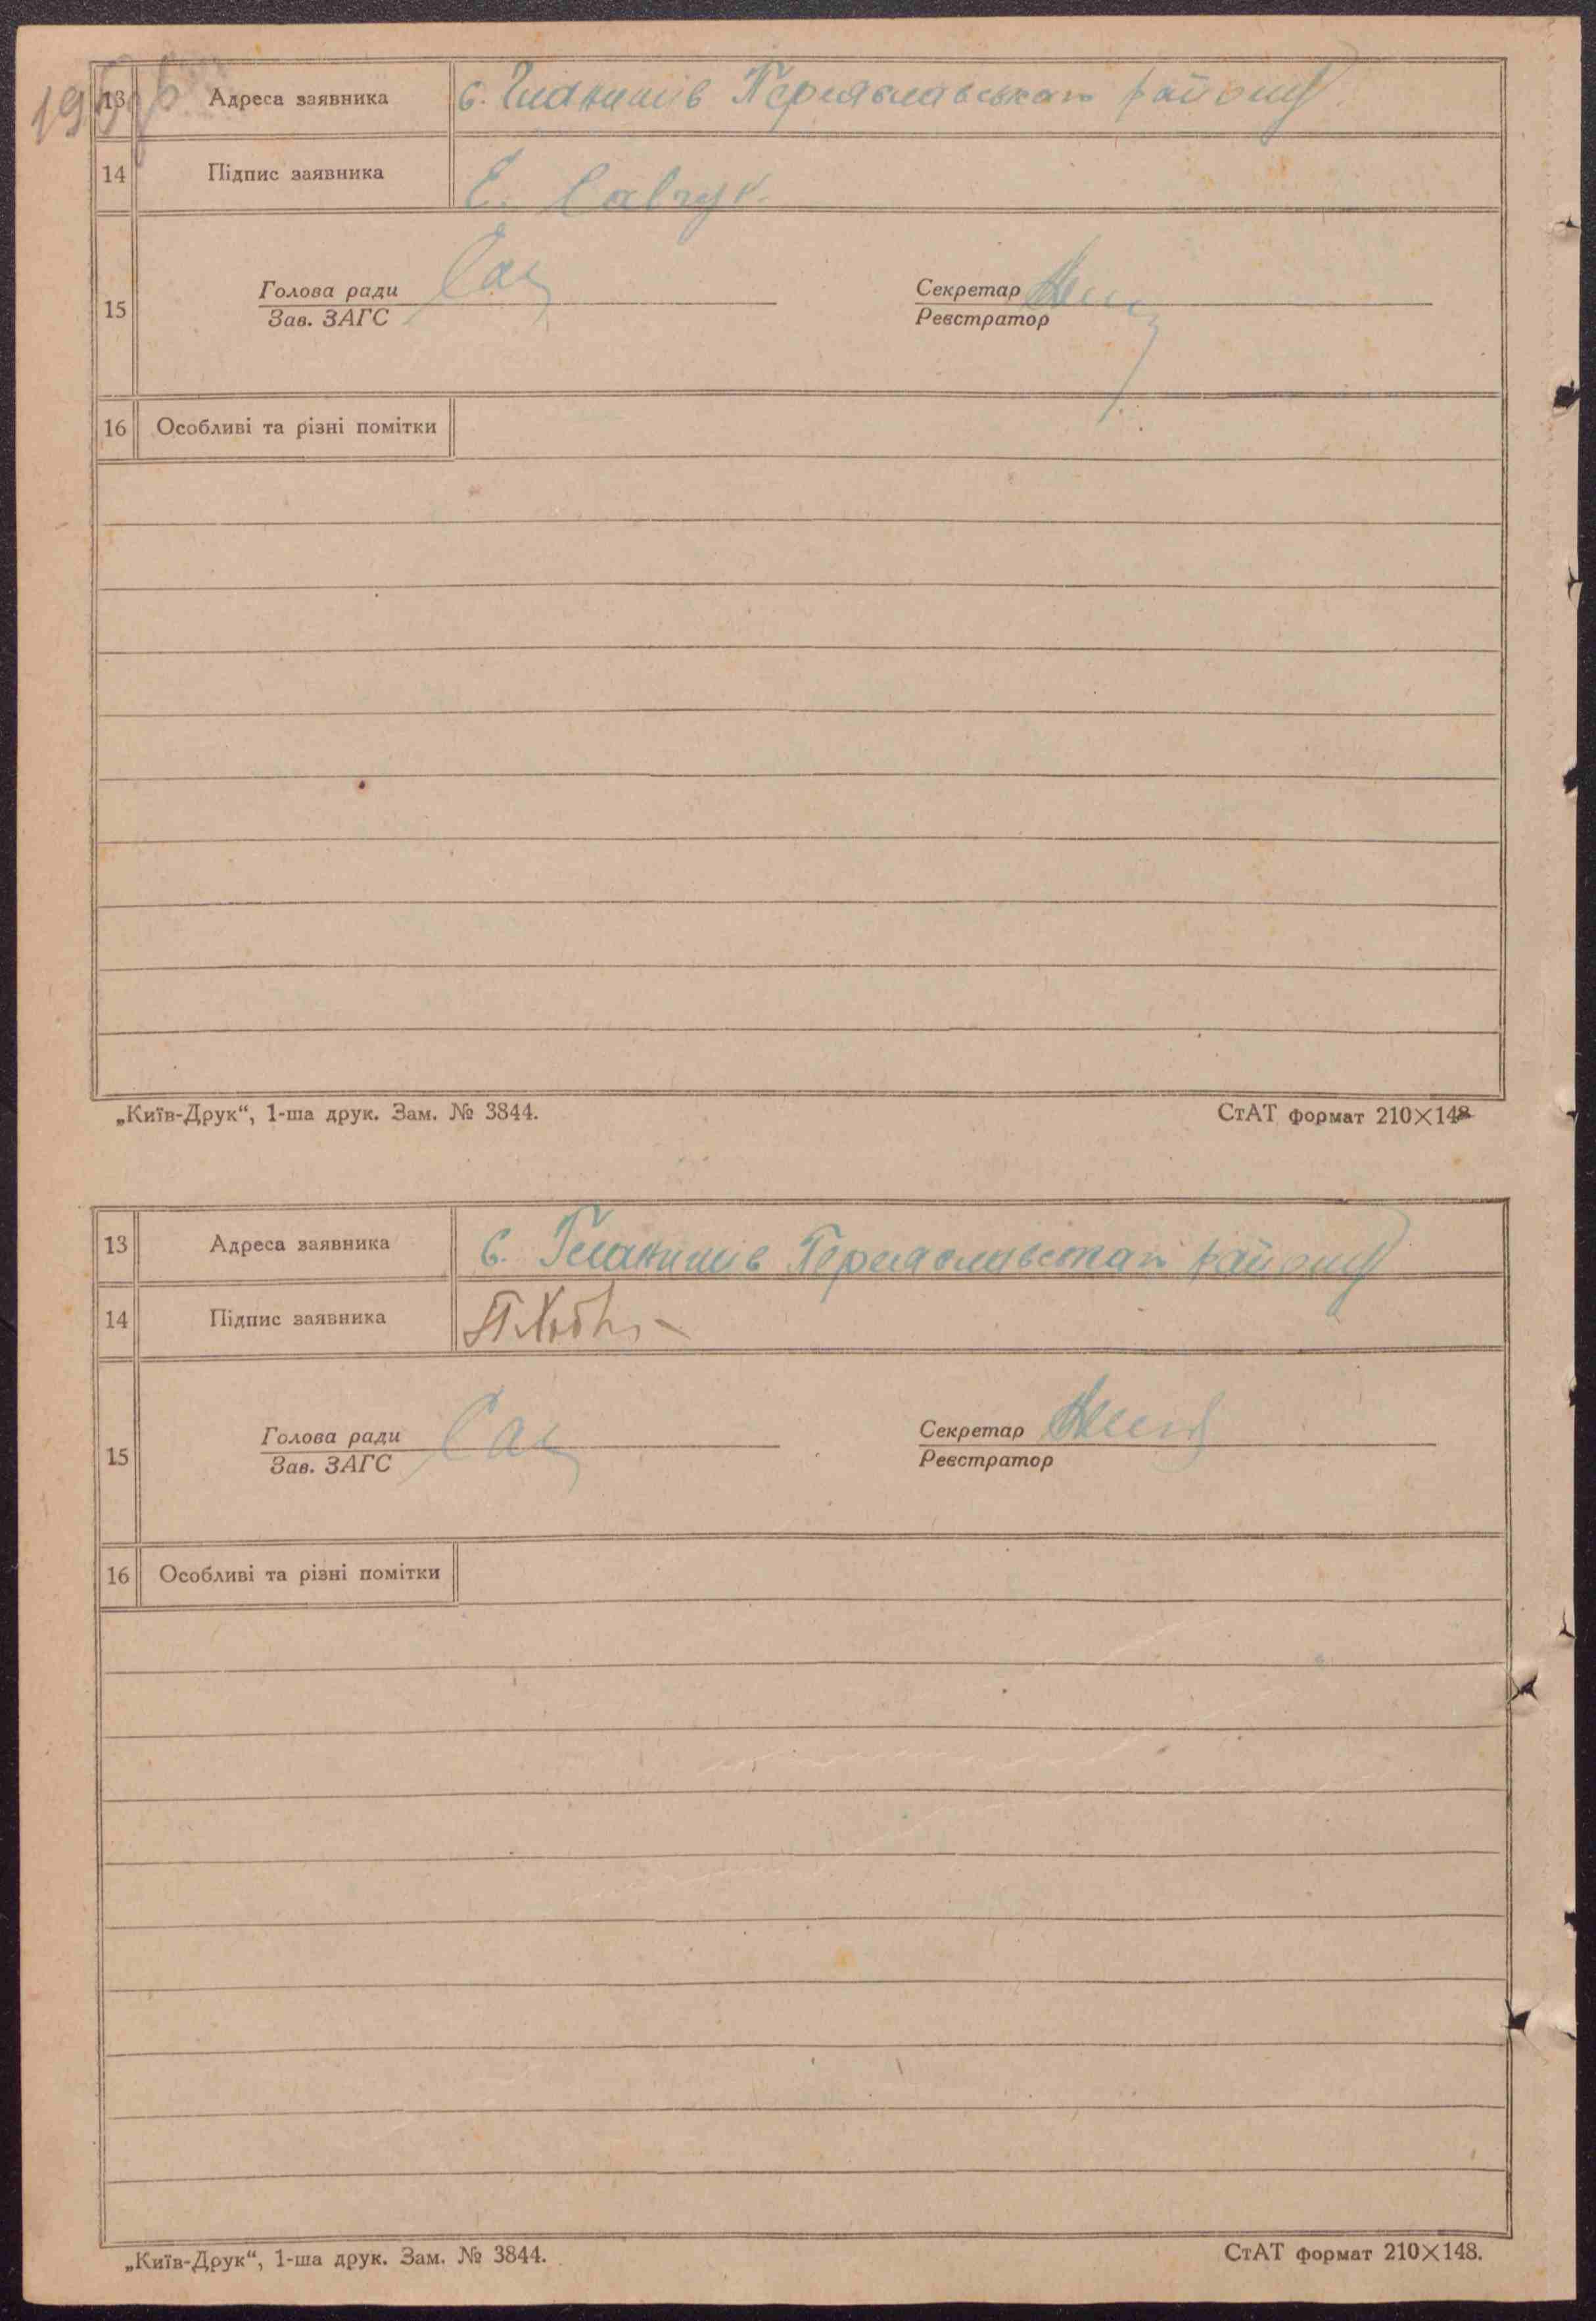 13 Адреса заявника с. Гланишів Переяславського району
14 Підпис заявника Є. Савчук
15 Голова ради Секретар
Зав. ЗАГС Реєстратор
16 Особливі та різні помітки
„Київ-Друк“, 1-ша друк. Зам. № 3844. СтАТ формат 210×148
13 Адреса заявника с. Гланишів Переяславського району
14 Підпис заявника
15 Голова ради Секретар
Зав. ЗАГС Реєстратор
16 Особливі та різні помітки
„Київ-Друк“, 1-ша друк. Зам. № 3844. СтАТ формат 210×148.